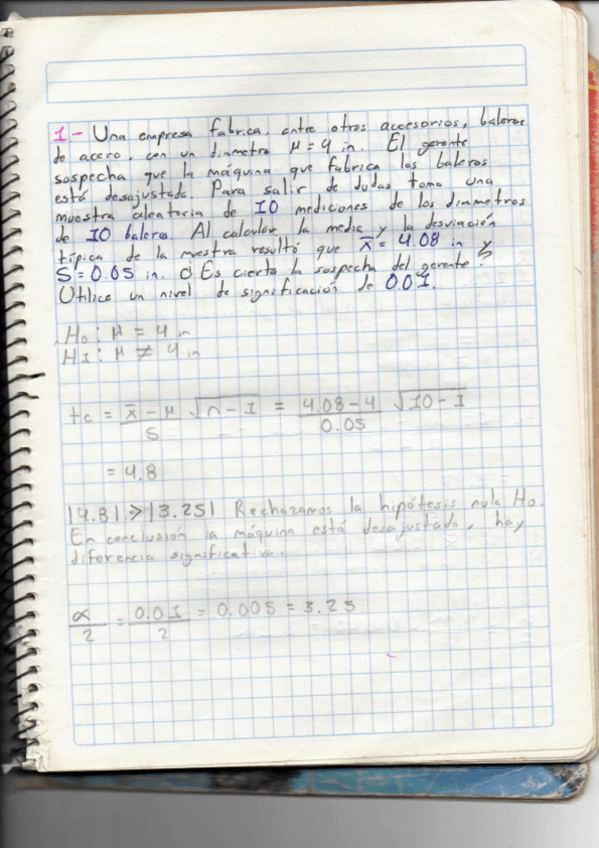 1- Una empresa fabrica, entre otros accesorios, baleros
de acero, con un diametro μ = 4 in. El gerente
sospecha que la máquina que fabrica los baleros
está desajustada. Para salir de dudas toma una
muestra aleatoria de 10 mediciones de los diametros
de 10 baleros. Al calcular la media y la desviación
típica de la muestra resultó que x̄ = 4.08 in y
S = 0.05 in. ¿Es cierta la sospecha del gerente?
Utilice un nivel de significación de 0.01.
H₀: μ = 4 in
H1: μ ≠ 4 in
tc = x̄ - μ / S √n - 1 = 4.08 - 4 / 0.05 √10 - 1
= 4.8
|4.8| > |3.25| Rechazamos la hipótesis nula H₀.
En conclusión la máquina está desajustada, hay
diferencia significativa.
α / 2 = 0.01 / 2 = 0.005 = 3.25